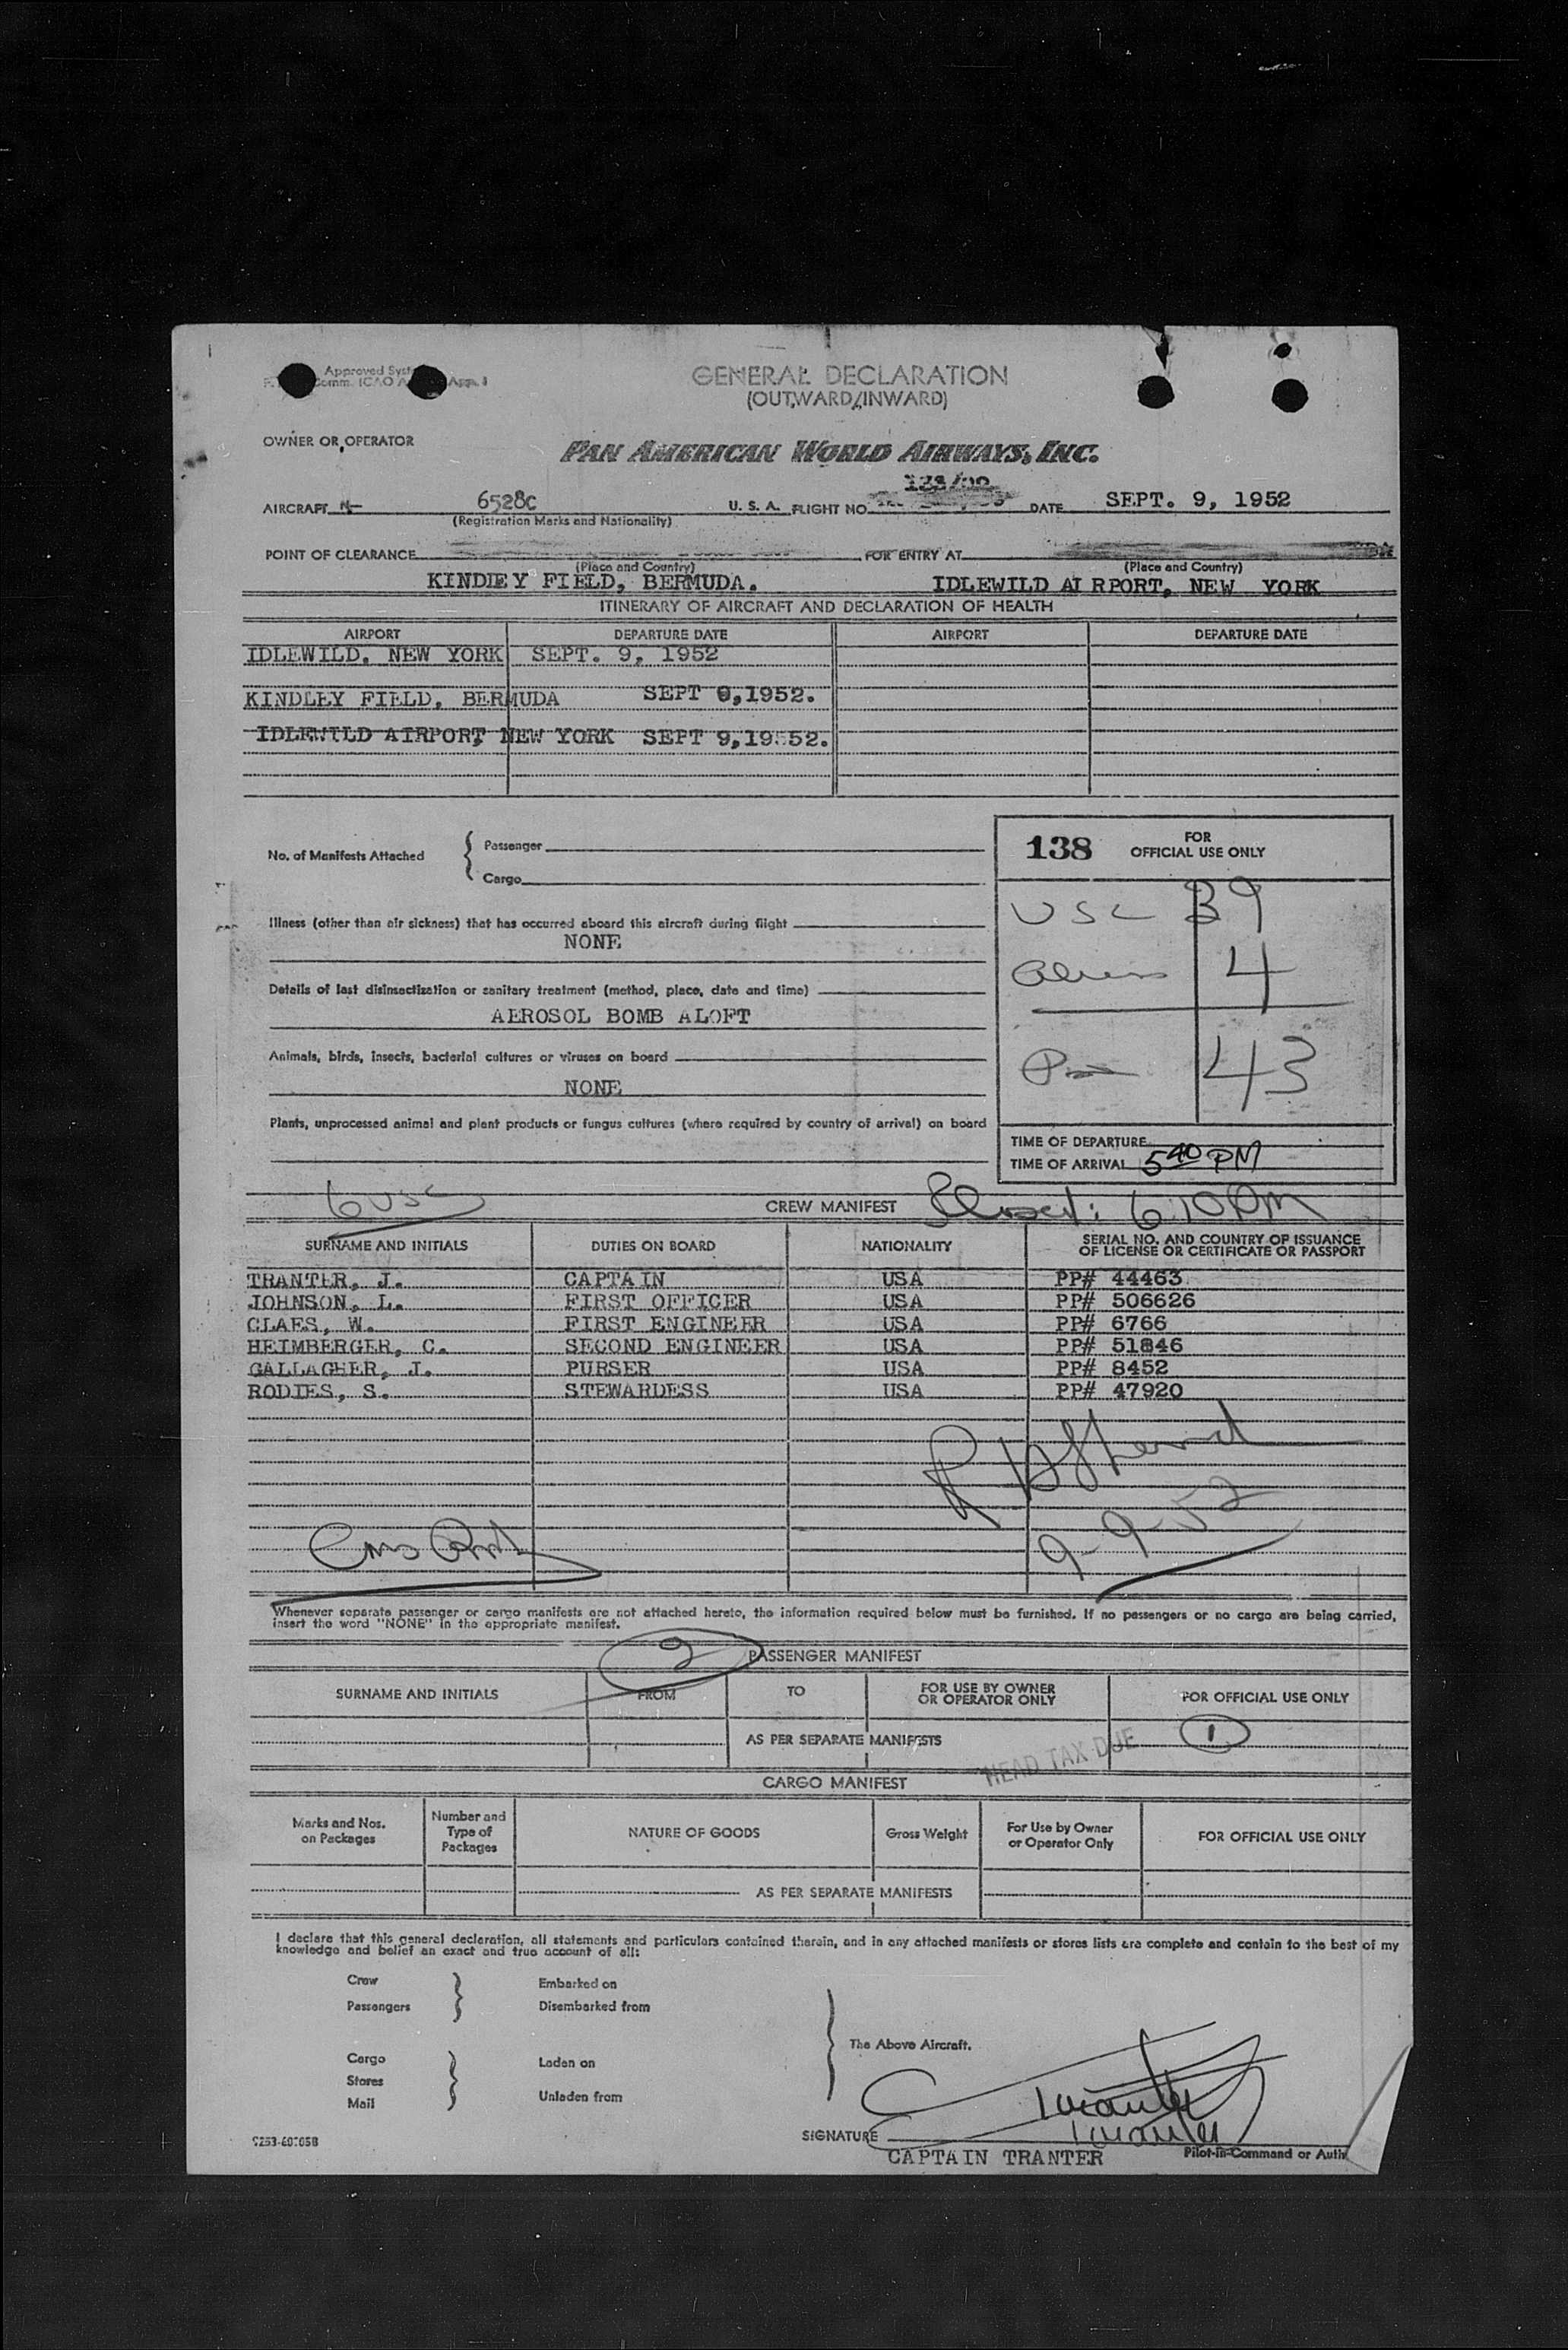 Approved Syst
Comm. ICAO A App. 1
GENERAL DECLARATION
(OUTWARD/INWARD)
OWNER OR OPERATOR
PAN AMERICAN WORLD AIRWAYS, INC.
AIRCRAFT N- 6528C U. S. A. FLIGHT NO. DATE SEPT. 9, 1952
(Registration Marks and Nationality)
POINT OF CLEARANCE FOR ENTRY AT
(Place and Country) (Place and Country)
KINDLEY FIELD, BERMUDA. IDLEWILD AI RPORT, NEW YORK
ITINERARY OF AIRCRAFT AND DECLARATION OF HEALTH
AIRPORT DEPARTURE DATE AIRPORT DEPARTURE DATE
IDLEWILD, NEW YORK SEPT. 9, 1952
KINDLEY FIELD, BERMUDA SEPT 9,1952.
IDLEWILD AIRPORT, NEW YORK SEPT 9,19552.
No. of Manifests Attached
Passenger
Cargo
138 FOR OFFICIAL USE ONLY
USC 39
Aliens 4
43
Illness (other than air sickness) that has occurred aboard this aircraft during flight
NONE
Details of last disinsectization or sanitary treatment (method, place, date and time)
AEROSOL BOMB ALOFT
Animals, birds, insects, bacterial cultures or viruses on board
NONE
Plants, unprocessed animal and plant products or fungus cultures (where required by country of arrival) on board
TIME OF DEPARTURE
TIME OF ARRIVAL 5 40 PM
6 USC CREW MANIFEST 6:10 PM
SURNAME AND INITIALS DUTIES ON BOARD NATIONALITY SERIAL NO. AND COUNTRY OF ISSUANCE OF LICENSE OR CERTIFICATE OR PASSPORT
TRANTER, J. CAPTAIN USA PP# 44463
JOHNSON, L. FIRST OFFICER USA PP# 506626
CLAES, W. FIRST ENGINEER USA PP# 6766
HEIMBERGER, C. SECOND ENGINEER USA PP# 51846
GALLAGHER, J. PURSER USA PP# 8452
RODIES, S. STEWARDESS USA PP# 47920
9-9-52
Whenever separate passenger or cargo manifests are not attached hereto, the information required below must be furnished. If no passengers or no cargo are being carried,
insert the word "NONE" in the appropriate manifest.
2
PASSENGER MANIFEST
SURNAME AND INITIALS FROM TO FOR USE BY OWNER OR OPERATOR ONLY FOR OFFICIAL USE ONLY
AS PER SEPARATE MANIFESTS 1
HEAD TAX DUE
CARGO MANIFEST
Marks and Nos. on Packages Number and Type of Packages NATURE OF GOODS Gross Weight For Use by Owner or Operator Only FOR OFFICIAL USE ONLY
AS PER SEPARATE MANIFESTS
I declare that this general declaration, all statements and particulars contained therein, and in any attached manifests or stores lists are complete and contain to the best of my
knowledge and belief an exact and true account of all:
Crew Embarked on
Passengers Disembarked from
The Above Aircraft.
Cargo Laden on
Stores
Mail Unladen from
SIGNATURE Tranter
CAPTAIN TRANTER Pilot-in-Command or Auth